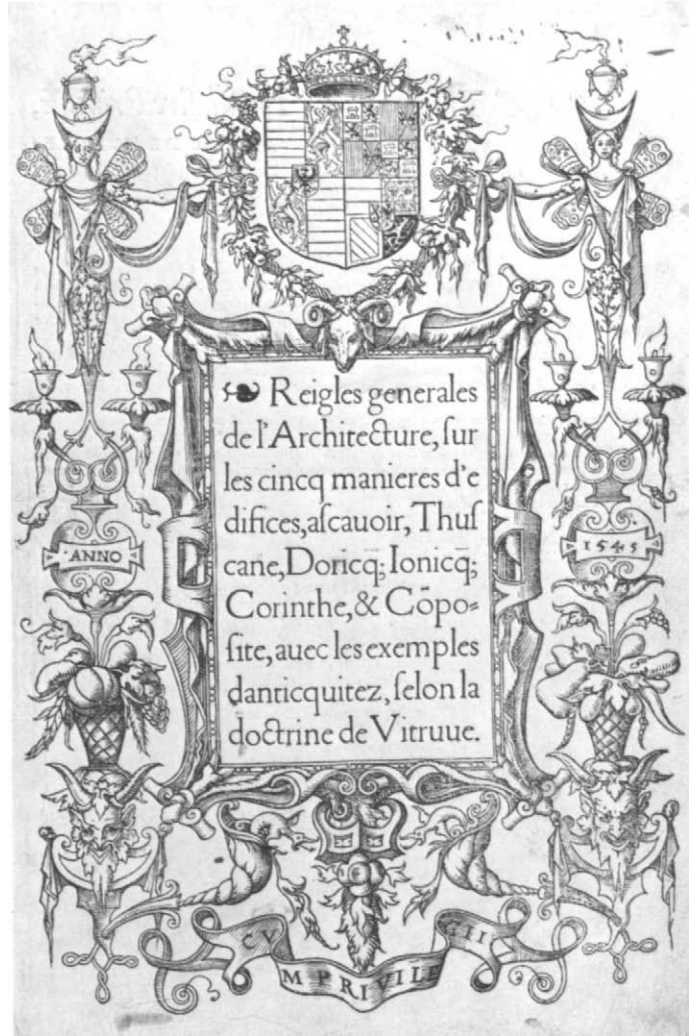 Reigles generales
de l'Architecture, sur
les cincq manieres d'e
difices, ascauoir, Thus
cane, Doricq̄; Ionicq̄;
Corinthe, & Cōpo=
site, auec les exemples
danticquitez, selon la
doctrine de Vitruue.
ANNO
1545
CVM PRIVILEGII